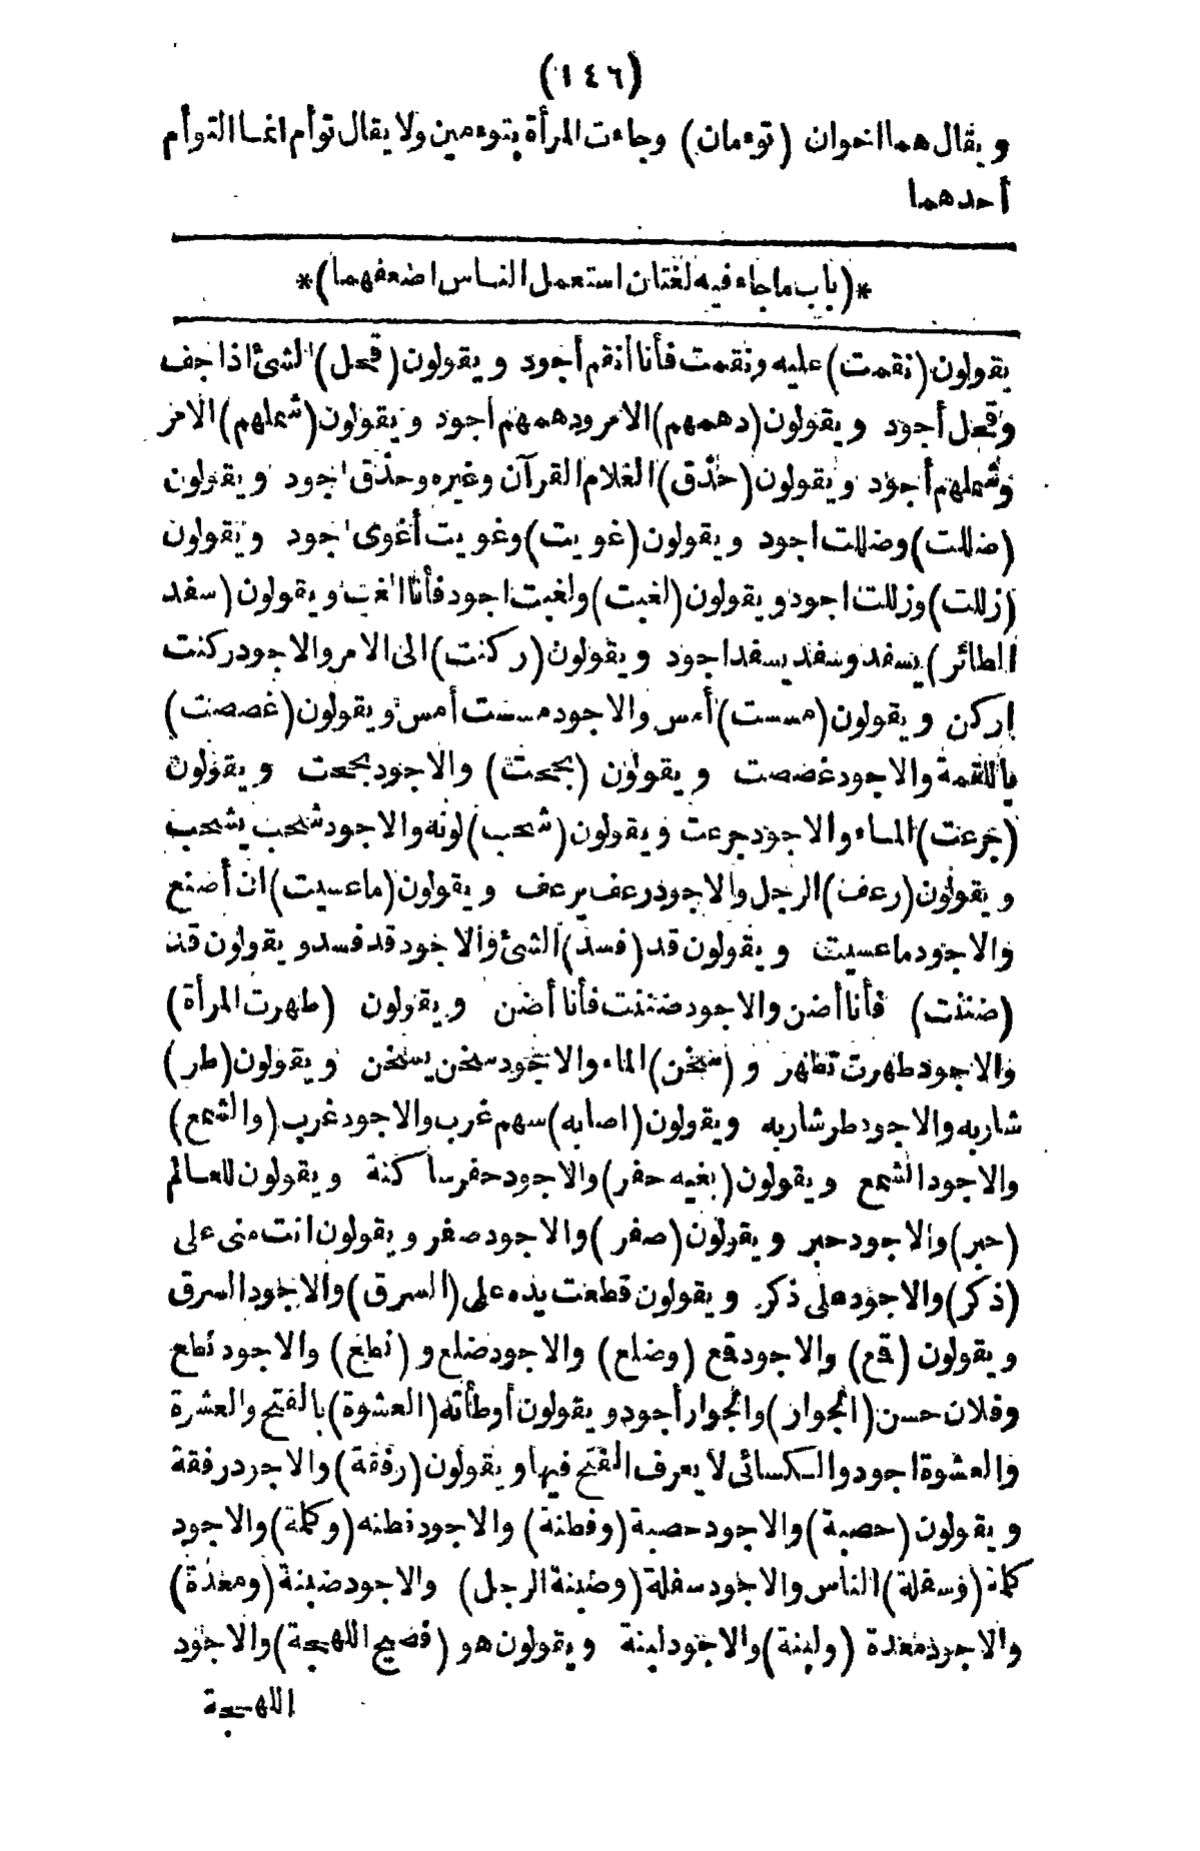 (١٤٦)
ويقال هما اخوان (توءمان) وجاءت المرأة بتوءمين ولا يقال توأم انما التوأم
أحدهما
*(باب ما جاء فيه لغتان استعمل الناس اضعفهما)*
يقولون (نقمت) عليه ونقمت فأنا أنقم أجود ويقولون (قحل) الشئ اذا جف
وقحل أجود ويقولون (دهمهم) الامر ودهمهم أجود ويقولون (شملهم) الامر
وشملهم أجود ويقولون (حذق) الغلام القرآن وغيره وحذق اجود ويقولون
(ضللت) وضللت اجود ويقولون (غويت) وغويت أغوى اجود ويقولون
(زللت) وزللت اجود ويقولون (لغبت) ولغبت اجود فأنا الغب ويقولون (سفد
الطائر) يسفد وسفد يسفد اجود ويقولون (ركنت) الى الامر والاجود ركنت
اركن ويقولون (مسست) أمس والاجود مسست أمس ويقولون (غصصت)
باللقمة والاجود غصصت ويقولون (بححت) والاجود بححت ويقولون
(جرعت) الماء والاجود جرعت ويقولون (شحب) لونه والاجود شحب يشحب
ويقولون (رعف) الرجل والاجود رعف يرعف ويقولون (ما عسيت) ان أصنع
والاجود ما عسيت ويقولون قد (فسد) الشئ والاجود قد فسد ويقولون قد
(ضننت) فأنا أضن والاجود ضننت فأنا أضن ويقولون (طهرت المرأة)
والاجود طهرت تطهر و (سخن) الماء والاجود سخن يسخن ويقولون (طر)
شاربه والاجود طر شاربه ويقولون (اصابه) سهم غرب والاجود غرب (والشمع)
والاجود الشمع ويقولون (بفيه حفر) والاجود حفر ساكنة ويقولون للعالم
(حبر) والاجود حبر ويقولون (صفر) والاجود صفر ويقولون انت منى على
(ذكر) والاجود على ذكر ويقولون قطعت يده على (السرق) والاجود السرق
ويقولون (قع) والاجود قع (وضلع) والاجود ضلع و (نطع) والاجود نطع
وفلان حسن (الجوار) والجوار أجود ويقولون أوطأته (العشوة) بالفتح والعشرة
والعشوة اجود والكسائى لا يعرف الفتح فيها ويقولون (رفقة) والاجود رفقة
ويقولون (حصبة) والاجود حصبة (وفطنة) والاجود فطنه (وكلمة) والاجود
كلمة (وسفلة) الناس والاجود سفلة (وضبنة الرجل) والاجود ضبنة (ومعدة)
والاجود معدة (ولبنة) والاجود لبنة ويقولون هو (فصيح اللهجة) والاجود
اللهجة